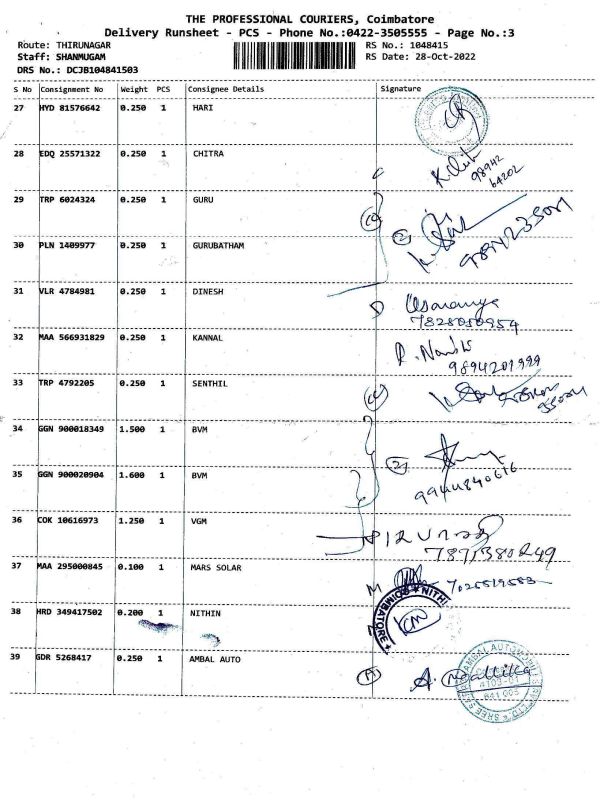 THE PROFESSIONAL COURIERS, Coimbatore
Delivery Runsheet - PCS - Phone No.:0422-3505555 - Page No.:3
Route: THIRUNAGAR
RS No.: 1048415
Staff: SHANMUGAM
RS Date: 28-Oct-2022
DRS No.: DCJB104841503
S No Consignment No Weight PCS Consignee Details Signature
27 HYD 81576642 0.250 1 HARI
28 EDQ 25571322 0.250 1 CHITRA
98942
64202
29 TRP 6024324 0.250 1 GURU
30 PLN 1409977 0.250 1 GURUBATHAM
31 VLR 4784981 0.250 1 DINESH
32 MAA 566931829 0.250 1 KANNAL
9894201999
33 TRP 4792205 0.250 1 SENTHIL
34 GGN 900018349 1.500 1 BVM
35 GGN 900020904 1.600 1 BVM
9944840616
36 COK 10616973 1.250 1 VGM
7871380249
37 MAA 295000845 0.100 1 MARS SOLAR
38 HRD 349417502 0.200 1 NITHIN
COIMBATORE
39 GDR 5268417 0.250 1 AMBAL AUTO
A. Mallika